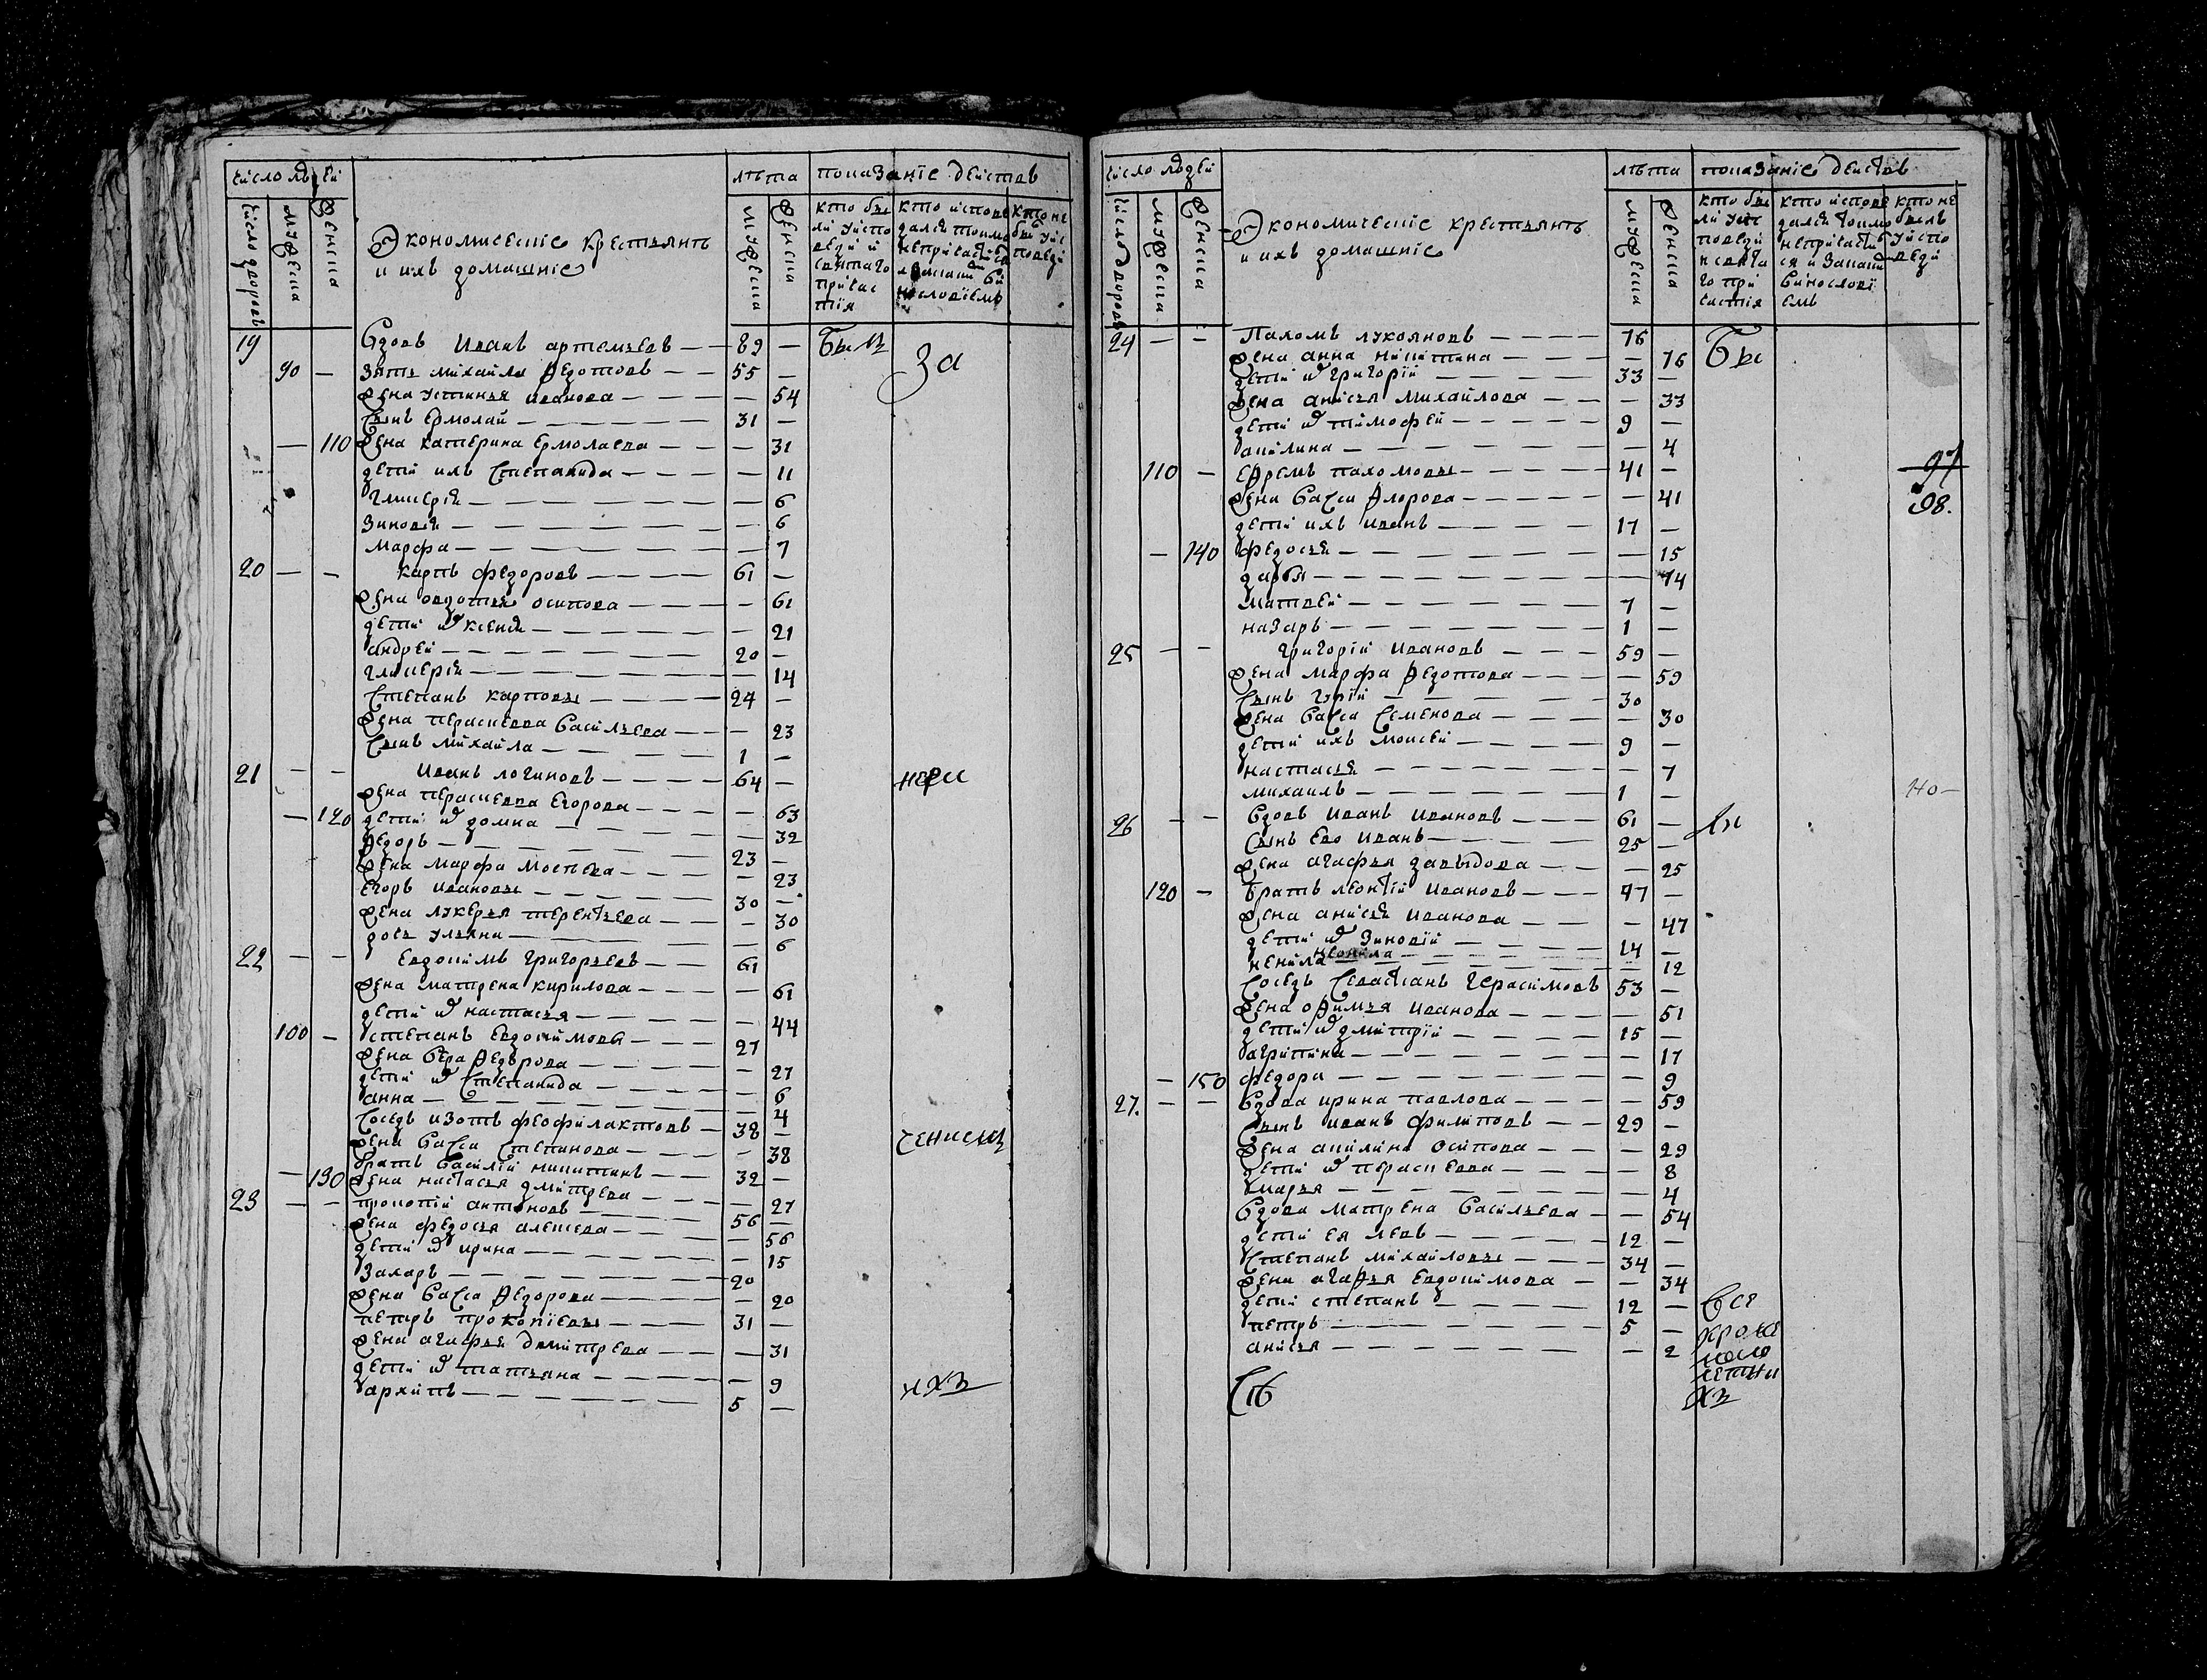 число людей
лѣта показаніе действ
число дворовъ
мужеска
женска
Экономическіе крестьянъ
и ихъ домашніе
мужеска
женска
кто бы
ли уиспо
веди и
святаго
причас
тія
кто испове
дался токмо
непричастился
кто не
бы уис
поведи
19 Вдовъ Иванъ артемьевъ — — 89 — Былъ
90 — Зять михайла Федотовъ — — 55 — За
жена устинья иванова — — — — 54
Сынъ Ермолай — — — — — — 31 —
— 110 жена катерина Ермолаева — — — 31
дети ихъ Степанида — — — — 11
гликерїя — — — — — — — 6
Зиновья — — — — — — — 6
марфа — — — — — — — 7
20 — — карпъ федоровъ — — — — 61 —
жена овдотья осипова — — — — 61
дети ѿ ксения — — — — — — 21
андрей — — — — — — — 20 —
гликерїя — — — — — — — 14
Степанъ карповъ — — — — 24 —
жена пераскевва васильева — — — 23
Сынъ михайла — — — — — 1 —
21 — — Иванъ логиновъ — — — — 64 — непри
жена пераскевва Егорова — — — 63
— 120 дети ѿ домна — — — — — 32
Федоръ — — — — — — — 23 —
жена марфа моисева — — — — 23
Егоръ ивановъ — — — — — 30 —
жена лукерья терентьева — — — 30
дочь ульяна — — — — — — 6
22 — — Евдокимъ григорьевъ — — 61
жена матрена кирилова — — — — 61
дети ѿ настасья — — — — — 44
100 — степанъ Евдокимовъ — — — — 27
жена вера Федорова — — — — — 27
дети ѿ Степанида — — — — — 6
анна — — — — — — — — 4
Соседъ изотъ феофилактовъ — 38 — частих
жена васса степанова — — — — 38
братъ василий никитинъ — — — 32 —
— 130 жена настасья дмитрева — — — 27
23 — — прокопий антоновъ — — — 56 —
жена федосья алексева — — — — 56
дети ѿ ирина — — — — — — 15
Захаръ — — — — — — — 20
жена васса Федорова — — — — 20
петръ прокопїевъ — — — — 31 —
жена агафья дмитрева — — — — 31
дети ѿ татьяна — — — — — 9
архипъ — — — — — — — 5 — ихъ
число людей
лѣта показаніе действ
число дворовъ
мужеска
женска
Экономическіе крестьянъ
и ихъ домашніе
мужеска
женска
кто бы
ли уис
поведи
и свята
го при
частия
кто испове
дался токмо
непричастил
ся и Заким
винослові
емъ
кто не
былъ
уиспо
веди
24 — — Пахомъ лукояновъ — — — — 76
жена анна никитина — — — — — 76 Бы
дети ѿ григорїй — — — — — 33 —
жена анисья михайлова — — — — 33
дети ѿ тимофей — — — — — 9 —
акилина — — — — — — — 4
110 — Ефремъ пахомовъ — — — — — 41 — 97
жена васса Флорова — — — — — — 41 98.
дети ихъ иванъ — — — — — 17 —
— 140 федосья — — — — — — — 15
дарья — — — — — — — — 14
матвей — — — — — — — 7 —
назаръ — — — — — — — 1 —
25 — — григорїй ивановъ — — — 59 —
жена марфа Федотова — — — — — 59
Сынъ гурїй — — — — — — 30
жена васса семенова — — — — — 30
дети ихъ моисей — — — — — 9 —
настасья — — — — — — — 7
михаилъ — — — — — — — 1 — но —
26 — — Вдовъ иванъ ивановъ — — — 61 — ли
Сынъ Ево иванъ — — — — — 25 —
жена агафья давыдова — — — — 25
120 — братъ леонтїй ивановъ — — — 47 —
жена анисья иванова — — — — 47
дети ѿ Зиновїй — — — — — 14 —
ненила неонила — — — — — — 12
Соседъ Севастианъ герасимовъ 53 —
жена офимья иванова — — — — — 51
дети ѿ дмитрїй — — — — — 15 —
агрипина — — — — — — — 17
— 150 федора — — — — — — — 9
27. — — Вдова ирина павлова — — — — 59
Сынъ иванъ филиповъ — — 29 —
жена акилина осипова — — — — 29
дети ѿ пераскевва — — — — — 8
марья — — — — — — — 4
Вдова матрена васильева — — 54
дети ея левъ — — — — — — 12 —
Степанъ михайловъ — — — — 34 —
жена агафья Евдокимова — — 34
дети степанъ — — — — — 12 — Все
петръ — — — — — — — 5 — кроме
анисья — — — — — — — 2 мало
летны
хъ